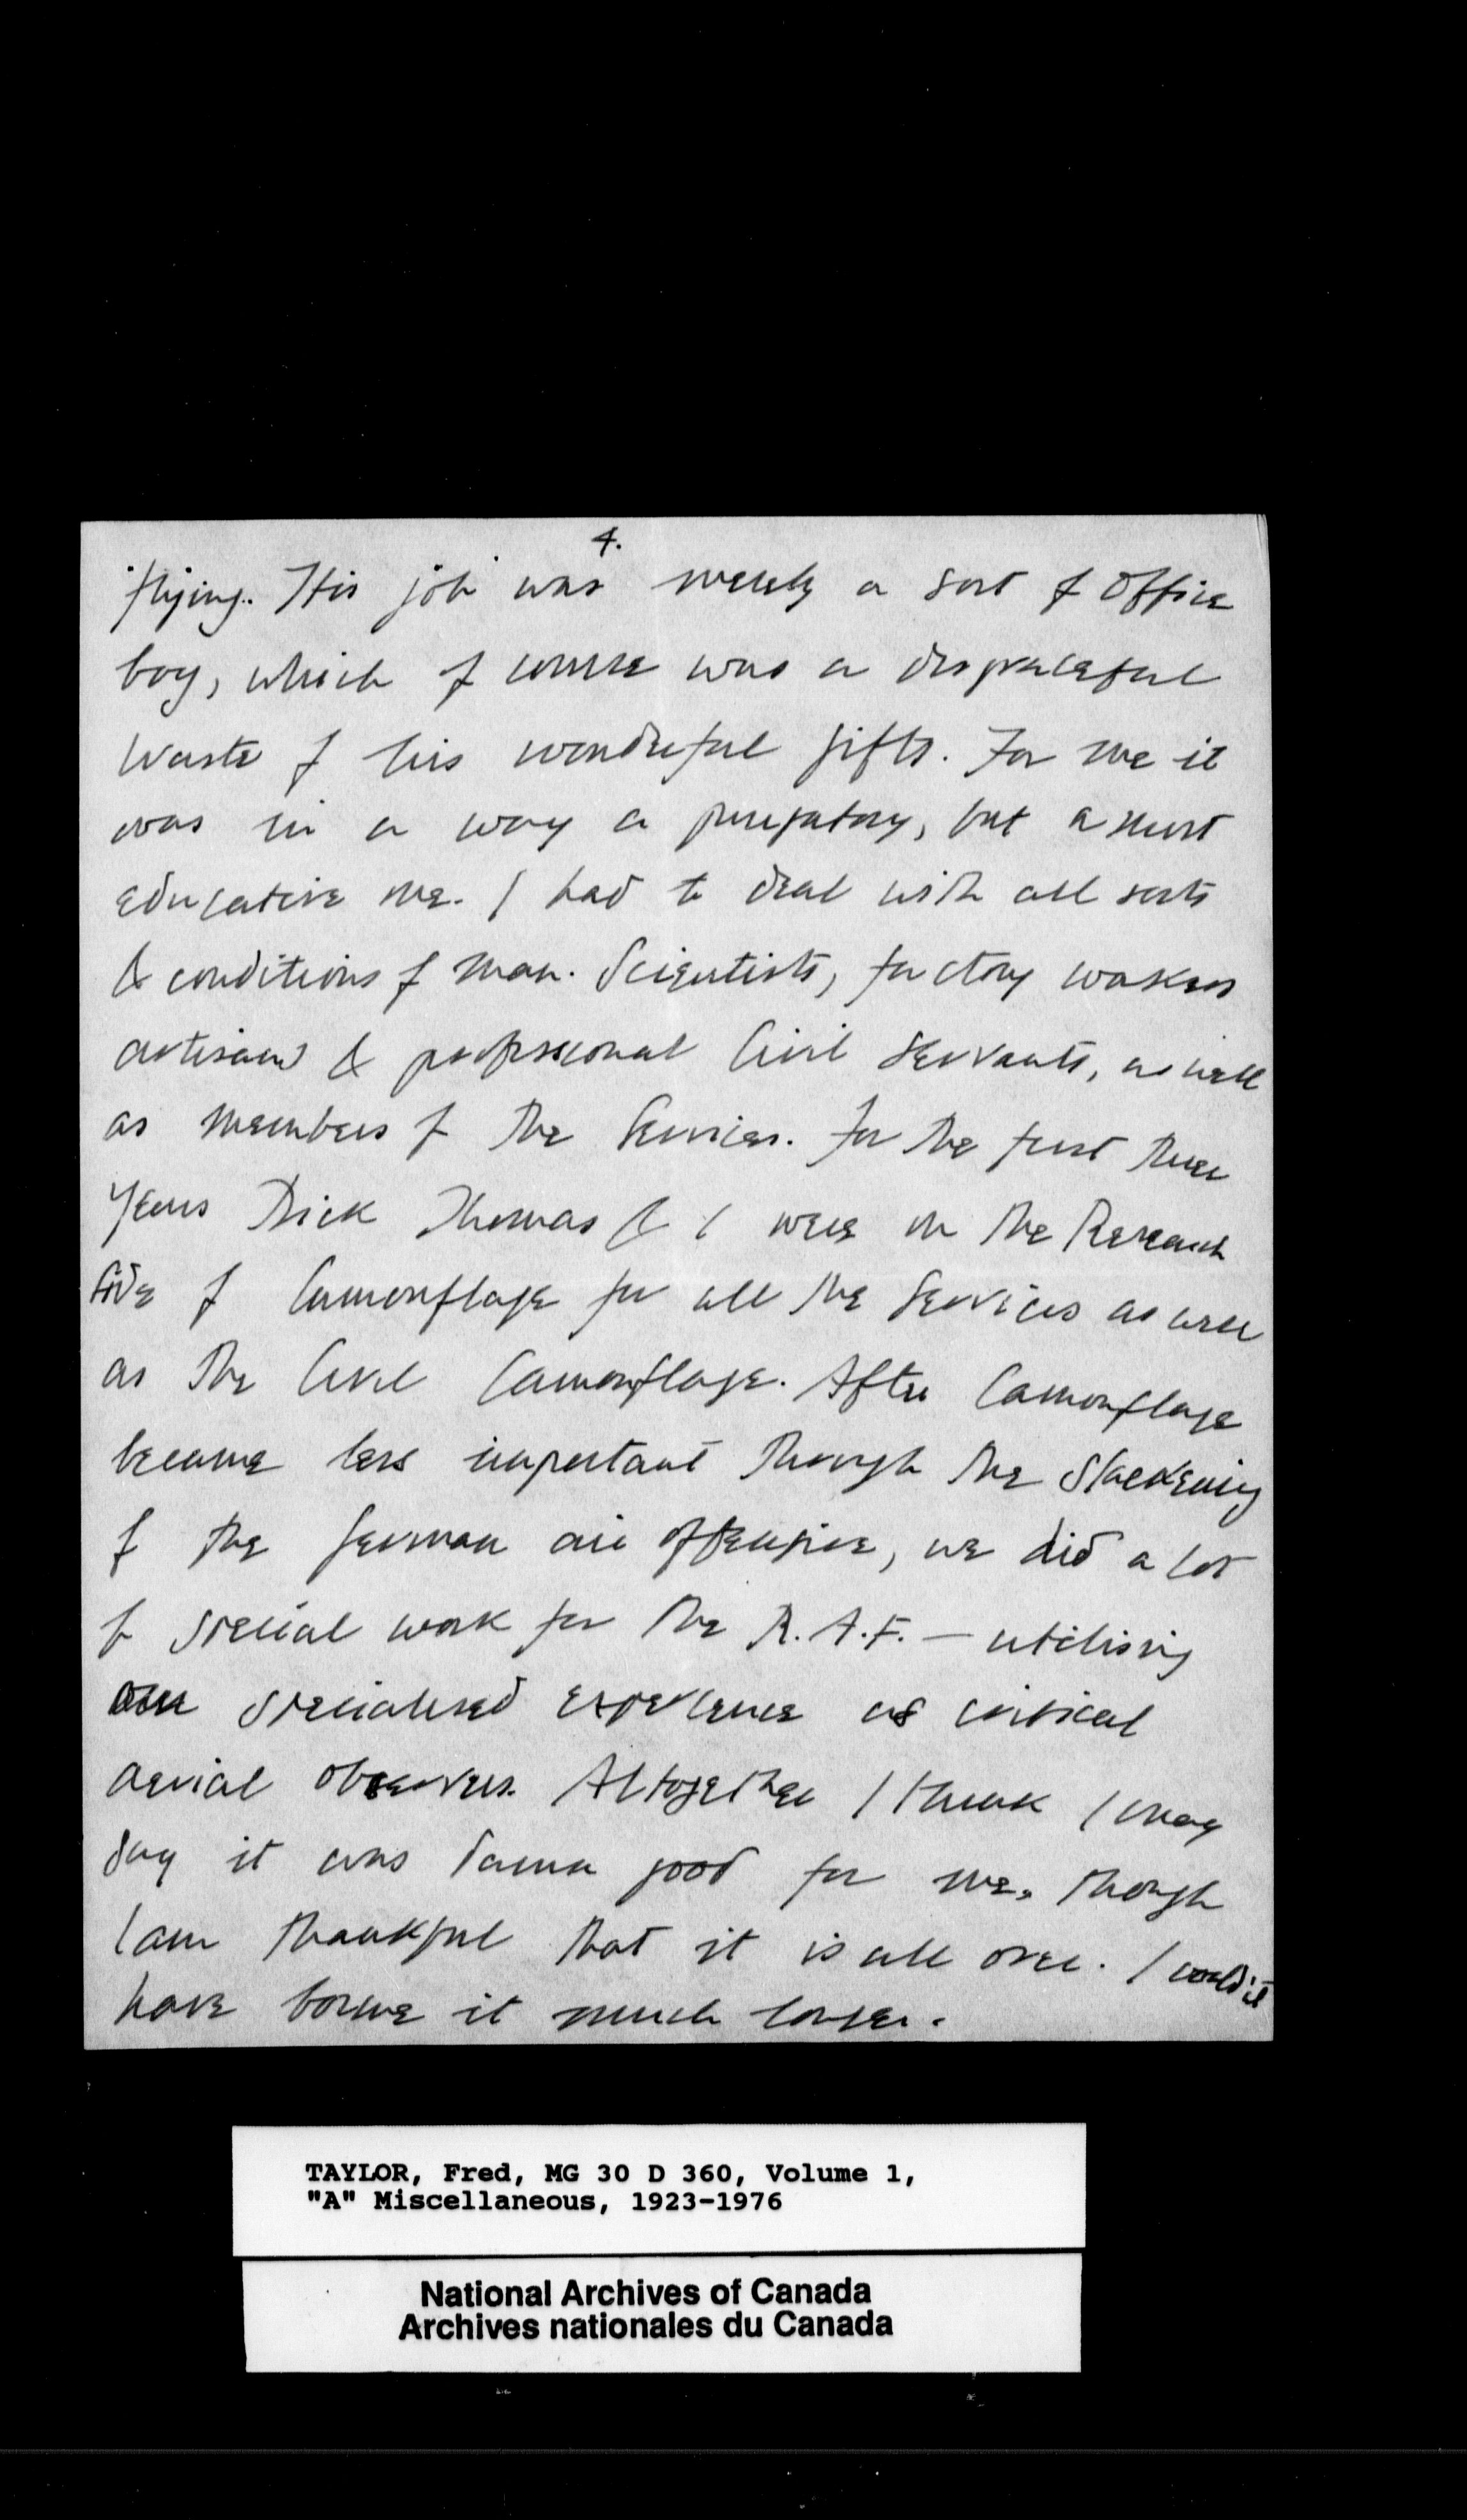 4.
flying. His job was merely a sort of office
boy, which of course was a disgraceful
waste of his wonderful gifts. For me it
was in a way a purgatory, but a most
educative one. I had to deal with all sorts
& conditions of man. Scientists, factory workers
artisans & professional Civil Servants, as well
as members of the Services. For the first three
years Dick Thomas & I were on the Research
side of Camouflage for all the Services as well
as the Civil Camouflage. After Camouflage
became less important through the slackening
of the German air offensive, we did a lot
of special work for the R.A.F. — utilising
our specialised experience as critical
aerial observers. Altogether I think I may
say it was damn good for me, though
I am thankful that it is all over. I couldn't
have borne it much longer.
TAYLOR, Fred, MG 30 D 360, Volume 1,
"A" Miscellaneous, 1923-1976
National Archives of Canada
Archives nationales du Canada